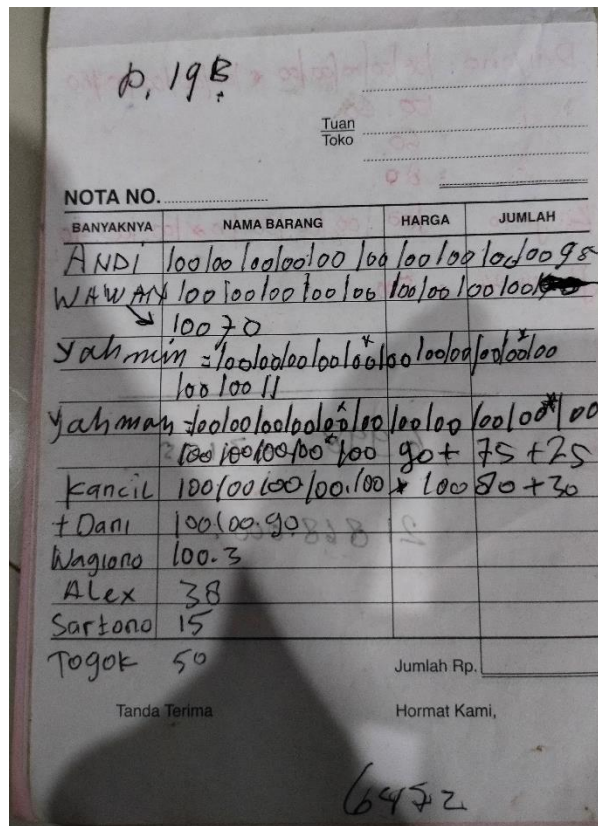 p. 19B
Tuan
Toko
NOTA NO.
BANYAKNYA NAMA BARANG HARGA JUMLAH
ANDI 100 100 100 100 100 100 100 100 100 100 98
WAWAN 100 100 100 100 100 100 100 100 100
100 70
Yahmin = 100 100 100 100 100 100 100 100 100 100 100
100 100 11
Yahman = 100 100 100 100 100 100 100 100 100 100 100
100 100 100 100 100 90 + 75 + 25
Kancil 100 100 100 100.100 100 80 + 30
+ Dani 100 100.90
Wagiono 100.3
Alex 38
Sartono 15
Togok 50
Jumlah Rp.
Tanda Terima Hormat Kami,
6472